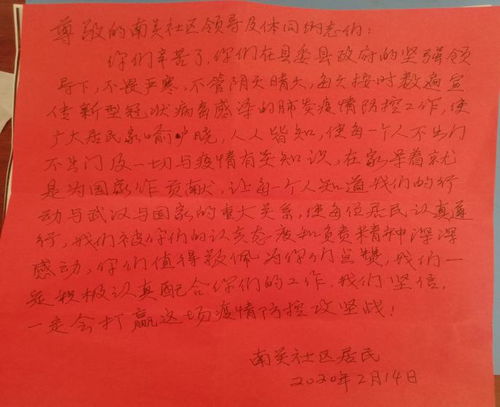 尊敬的南关社区领导及体同志们:
你们辛苦了,你们在县委县政府的坚强领
导下,不畏严寒,不管阴天晴天,每天按时数遍宣
传新型冠状病毒感染的肺炎疫情防控工作,使
广大居民家喻户晓,人人皆知,使每一个人不出门
不出门及一切与疫情有关知识,在家呆着就
是为国家作贡献,让每一个人知道我们的行
动与武汉与国家的重大关系,使每位居民认真遵
行,我们被你们的认真态度和负责精神深深
感动,你们值得敬佩,为你们点赞,我们一
定积极认真配合你们的工作,我们坚信,
一定会打赢这场疫情防控攻坚战!
南关社区居民
2020年2月14日